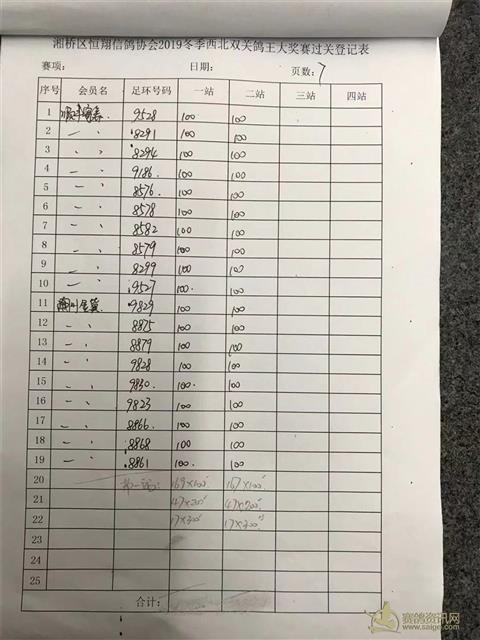 湘桥区恒翔信鸽协会2019冬季西北双关鸽王大奖赛过关登记表
赛项： 日期： 页数：7
序号 会员名 足环号码 一站 二站 三站 四站
1 9528 100 100
2 一 、 8291 100 100
3 、 、 8294 100 100
4 一 、 9186. 100 100
5 一 、 8576. 100 100
6 一 、 8578 100 100
7 一 、 8582 100 100
8 一 、 8579 100 100
9 一 、 8299 100 100
10 一 、 9527 100. 100
11 9829 100 100
12 一 、 8875 100 100
13 一 、 8879 100 100
14 一 、 9828 100 100
15 一 、 9830. 100. 100
16 一 、 9823 100 100
17 一 、 8866. 100 100
18 一 、 8868 100 100
19 一 、 8861 100. 100
20 169×100 167×100
21 47×200 47×200
22 17×300 17×300
23
24
25
合计：
赛鸽资讯网
www.saige.com